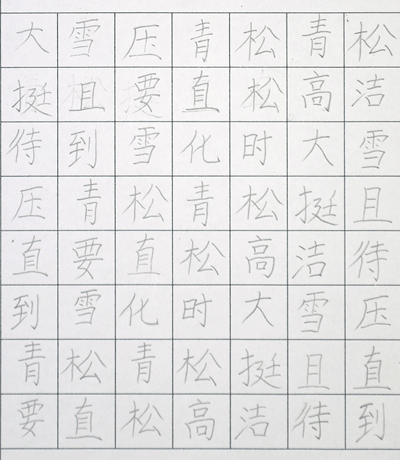 大雪压青松青松
挺且要直松高洁
待到雪化时大雪
压青松青松挺且
直要直松高洁待
到雪化时大雪压
青松青松挺且直
要直松高洁待到